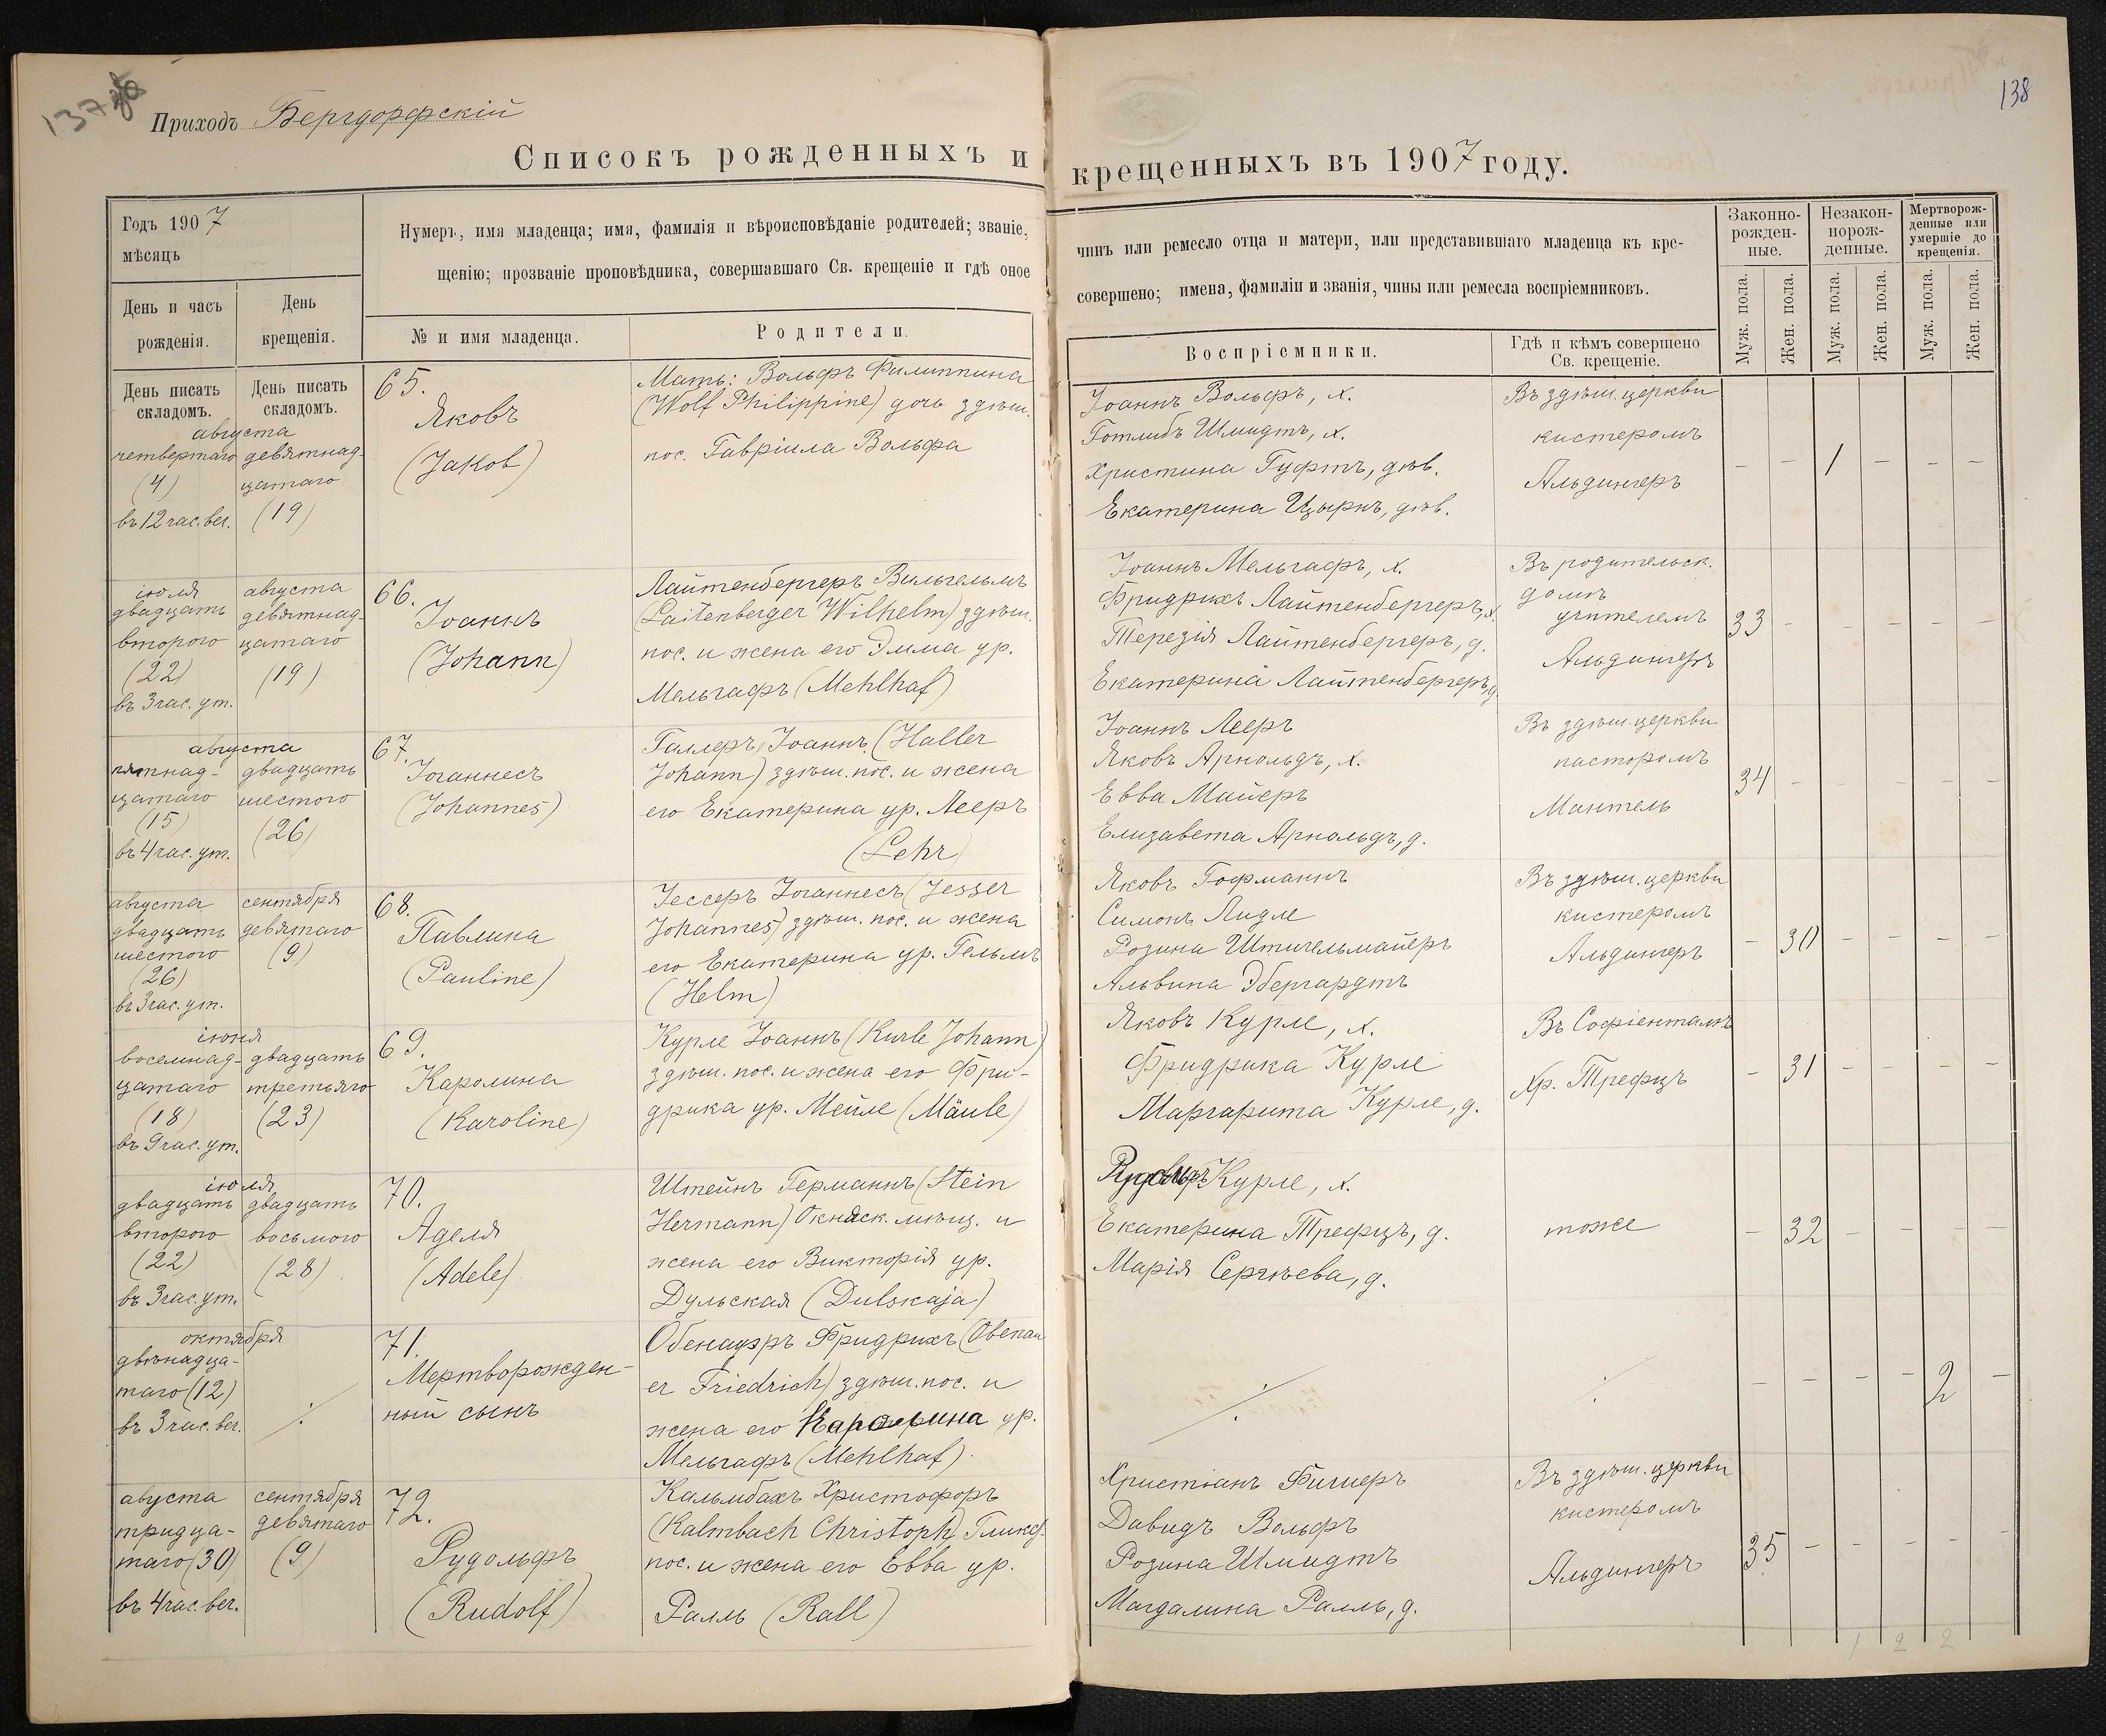 137 об
Приходъ Бергдорфскій
Списокъ рожденныхъ и
Годъ 1907
мѣсяцъ
Нумеръ, имя младенца; имя, фамилія и вѣроисповѣданіе родителей; званіе,
щенію; прозваніе проповѣдника, совершавшаго Св. крещеніе и гдѣ оное
День и часъ
рожденія.
День
крещенія.
№ и имя младенца.
Родители.
День писать
складомъ.
День писать
складомъ.
августа
четвертаго
(4)
въ 12 час. веч.
девятнад-
цатаго
(19)
65.
Яковъ
(Jakob)
Мать: Вольфъ Филиппина
(Wolf Philippine) дочь здѣш.
пос. Гавріила Вольфа
іюля
двадцать
второго
(22)
въ 3 час. ут.
августа
девятнад-
цатаго
(19)
66.
Іоаннъ
(Johann)
Лайтенбергеръ Вильгельмъ
(Laitenberger Wilhelm) здѣш.
пос. и жена его Эмма ур.
Мельгафъ (Mehlhaf)
августа
пятнад-
цатаго
(15)
въ 4 час. ут.
двадцать
шестого
(26)
67.
Іоганнесъ
(Johannes)
Галлеръ Іоаннъ (Haller
Johann) здѣш. пос. и жена
его Екатерина ур. Лееръ
(Lehr)
августа
двадцать
шестого
(26)
въ 3 час. ут.
сентября
девятаго
(9)
68.
Павлина
(Pauline)
Іессеръ Іоганнесъ (Jesser
Johannes) здѣш. пос. и жена
его Екатерина ур. Гельмъ
(Helm)
іюня
восемнад-
цатаго
(18)
въ 9 час. ут.
двадцать
третьяго
(23)
69.
Каролина
(Karoline)
Курле Іоаннъ (Kurle Johann)
здѣш. пос. и жена его Фри-
дрика ур. Мейле (Mäule)
іюля
двадцать
второго
(22)
въ 3 час. ут.
двадцать
восьмого
(28)
70.
Аделя
(Adele)
Штейнъ Германнъ (Stein
Hermann) Окняск. мѣщ. и
жена его Викторія ур.
Дульская (Dulskaja)
октября
двѣнадца-
таго (12)
въ 3 час. веч.
71.
Мертворожден-
ный сынъ
Обенауэръ Фридрихъ (Obenau
er Friedrich) здѣш. пос. и
жена его ур.
Мельгафъ (Mehlhaf).
августа
тридца-
таго (30)
въ 4 час. веч.
сентября
девятаго
(9)
72.
Рудольфъ
(Rudolf)
Кальмбахъ Христофоръ
(Kalmbach Christoph) Гликсд.
пос. и жена его Евва ур.
Ралль (Rall)
138
крещенныхъ въ 1907 году.
чинъ или ремесло отца и матери, или представившаго младенца къ кре-
совершено; имена, фамиліи и званія, чины или ремесла воспріемниковъ.
Воспріемники.
Гдѣ и кѣмъ совершено
Св. крещеніе.
Законно-
рожден-
ные.
Незакон-
норож-
денные.
Мертворож-
денные или
умершіе до
крещенія.
Муж. пола.
Жен. пола.
Муж. пола.
Жен. пола.
Муж. пола.
Жен. пола.
Іоаннъ Вольфъ, х.
Готлибъ Шмидтъ, х.
Христина Гуфтъ, дѣв.
Екатерина Цырнъ, дѣв.
Въ здѣш. церкви
кистеромъ
Альдингеръ
– – 1 – – –
Іоаннъ Мельгафъ, х.
Фридрихъ Лайтенбергеръ, х.
Терезія Лайтенбергеръ, д.
Екатерина Лайтенбергеръ, д.
Въ родительск.
домѣ
учителемъ
Альдингеръ
33 – – – – –
Іоаннъ Лееръ
Яковъ Арнольдъ, х.
Евва Майеръ
Елизавета Арнольдъ, д.
Въ здѣш. церкви
пасторомъ
Мантель
34 – – – – –
Яковъ Гофманнъ
Симонъ Лидле
Розина Штигельмайеръ
Альвина Эбергардтъ
Въ здѣш. церкви
кистеромъ
Альдингеръ
– 30 – – – –
Яковъ Курле, х.
Фридрика Курле
Маргарита Курле, д.
Въ Софіенталѣ
Хр. Трефцъ
– 31 – – – –
Курле, х.
Екатерина Трефцъ, д.
Марія Сергѣева, д.
тоже
– 32 – – – –
– – – – 2 –
Христіанъ Фишеръ
Давидъ Вольфъ
Розина Шмидтъ
Магдалина Ралль, д.
Въ здѣш. церкви
кистеромъ
Альдингеръ
35 – – – – –
1 2 2